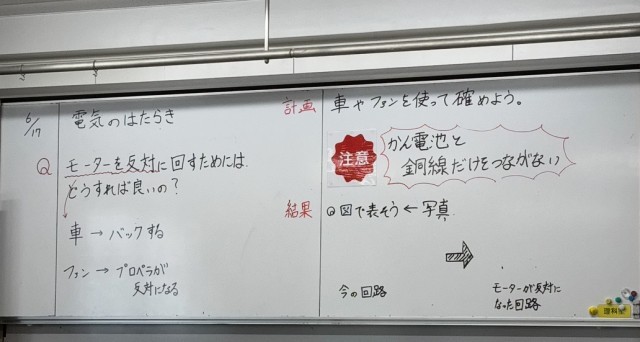 6/17
電気のはたらき
Q モーターを反対に回すためには
どうすれば良いの?
車 → バックする
ファン → プロペラが
反対になる
計画 車やファンを使って確めよう。
注意
かん電池と
銅線だけをつながない
結果 図で表そう ← 写真
今の回路
モーターが反対に
なった回路
理科室